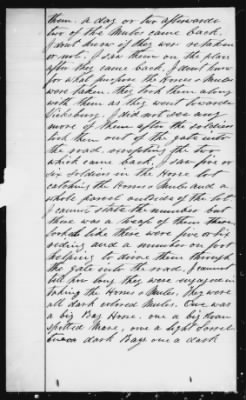 them. a day or two afterwards
two of the mules came back.
I don't know if they were retaken
or not. I saw them on the place
after they came back. I don't know
for what purpose the Horses & Mules
were taken. They took them along
with them as they went towards
Vicksburg. I did not see any
more of them after the soldiers
took them out of the gate into
the road, excepting the two
which came back. I saw five or
six soldiers in the Horse lot
catching the Horses & Mules and a
whole parcel outside of the lot
I cannot state the number but
there was a heap of them there
looked like there were five or six
riding and a number on foot
helping to drive them through
the gate into the road. I cannot
tell how long they were engaged in
taking the Horses & Mules. They were
all dark colored Mules. One was
a big Bay Horse. one a big roan
spotted Mare, one a light Sorrel
two dark Bays one a dark